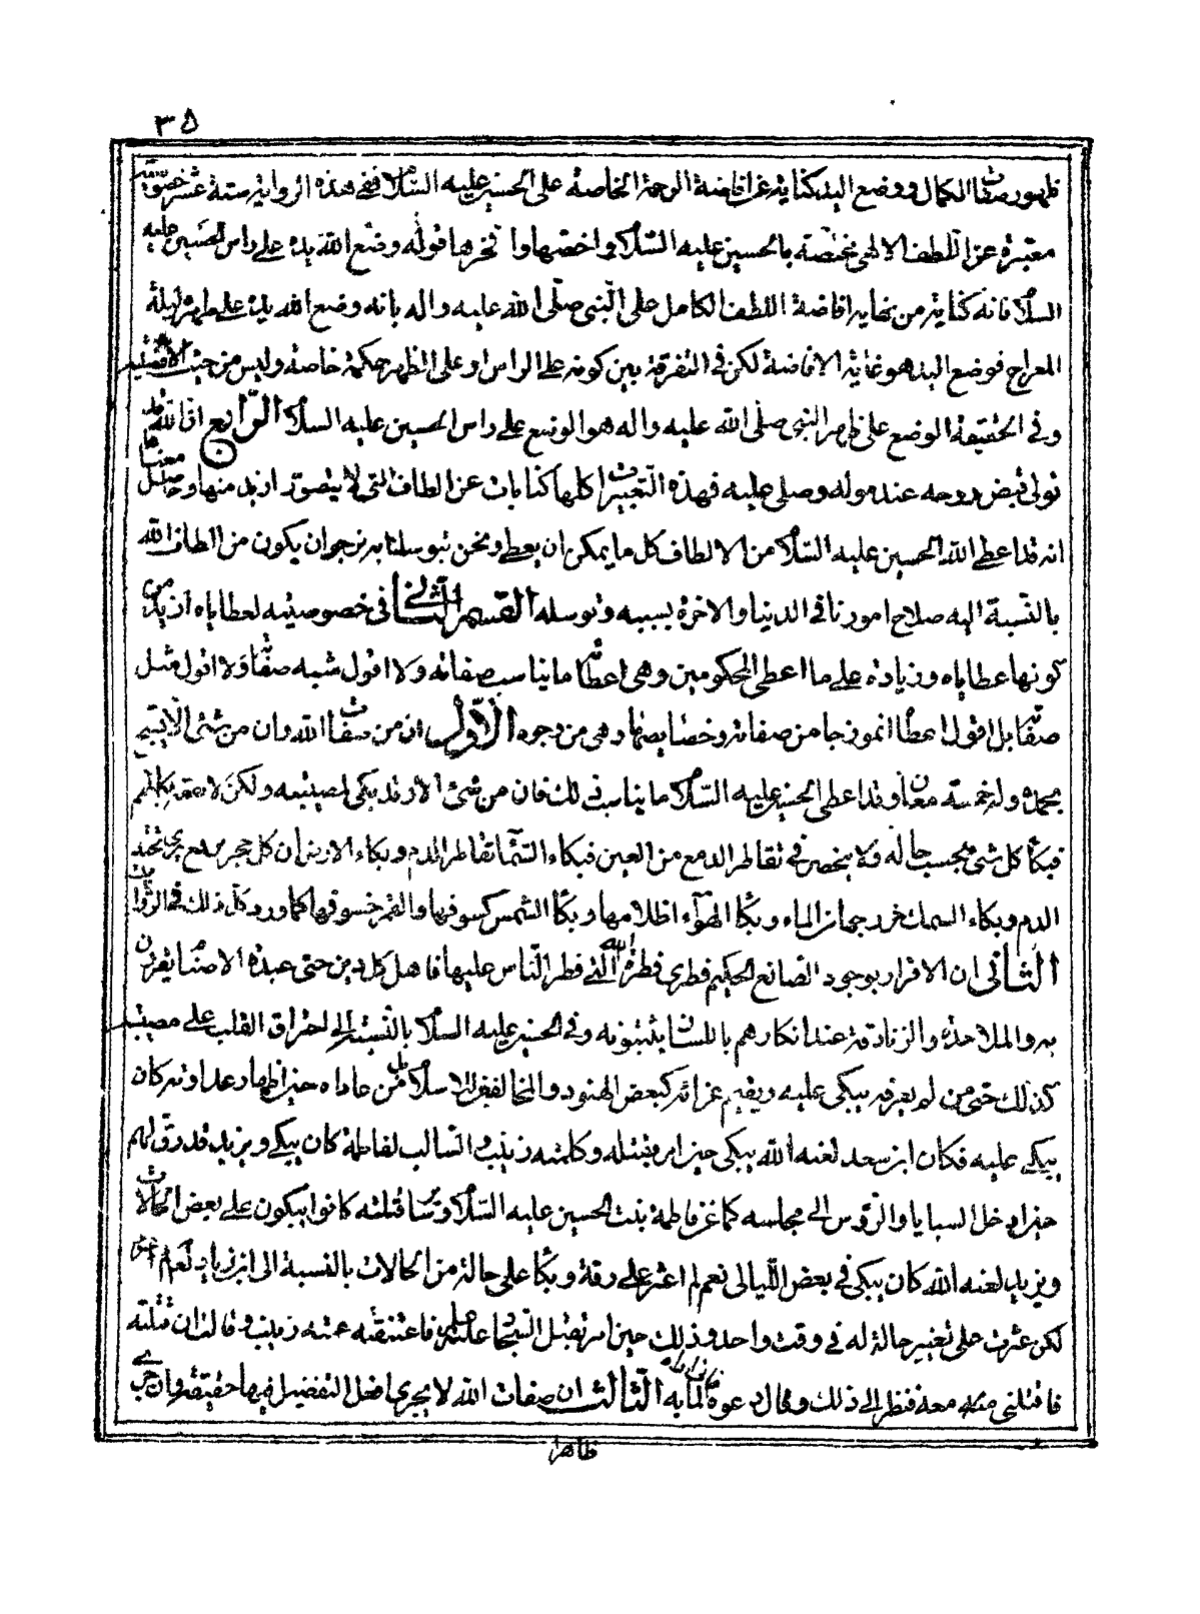 ٣٥
ظهور صفات الكمال ووضع اليد كناية عن افاضة الرحمة الخاصة على الحسين عليه السلام ففى هذه الرواية ستة عشر خصوصية
معتبرة عن اللطف الالهى مختصة بالحسين عليه السلام واخصها وآخرها قوله وضع الله يده على راس الحسين عليه
السلام فانه كناية من نهاية افاضة اللطف الكامل على النبى صلى الله عليه واله بانه وضع الله يده على ظهره ليلة
المعراج فوضع اليد هو غاية الافاضة لكن فى التفرقة بين كونه على الراس او على الظهر حكمة خاصة وليس من حيث الافضلية
وفى الحقيقة الوضع على ظهر النبى صلى الله عليه واله هو الوضع على راس الحسين عليه السلام الرابع ان الله قد
تولى قبض روحه عند موته وصلى عليه فهذه التعبيرات كلها كنايات عن الطاف التى لا يتصور ازيد منها وحاصل معناها
انه قد اعطى الله الحسين عليه السلام من الالطاف كل ما يمكن ان يعطى ونحن نتوسلنا به نرجو ان يكون من الطاف الله
بالنسبة اليه صلاح امورنا فى الدنيا والاخرة بسببه وتوسله القسم الثانى فى خصوصيته لعطاياه ازيد من
كونها عطاياه وزيادة على ما اعطى المحكومين وهى اعطاء ما يناسب صفاته ولا اقول شبه صفات ولا اقول مثل
صفات بل اقول اعطا انموذجا من صفاته وخصايصها وهى من وجوه الاول ان من صفات الله وان من شئ الا يسبح
بحمده وله خمسة معان وقد اعطى الحسين عليه السلام ما يناسب ذلك فان من شئ الا وقد بكى لمصيبته ولكن لا تفقهون بكائهم
فبكاء كل شئ بحسب حاله ولا ينحصر فى تقاطر الدمع من العين فبكاء السماء تقاطر الدم وبكاء الارض ان كل حجر يرفع يرى تحته
الدم وبكاء السمك خروجها من الماء وبكاء الهواء اظلامها وبكاء الشمس كسوفها والقمر خسوفها كما ورد كل ذلك فى الروايات
الثانى ان الاقرار بوجود الصانع الحكيم فطرى فطرة الله التى فطر الناس عليها فاهل كل دين حتى عبدة الاصنام يقرون
به والملاحدة والزنادقة عند انكارهم باللسان يثبتونه وفى الحسين عليه السلام بالنسبة الى احتراق القلب على مصيبته
كذلك حتى من لم يعرفه يبكى عليه ويقيم عزائه كبعض الهنود والمخالفين للاسلام بل من عاداه حين اظهار عداوته كان
يبكى عليه فكان ابن سعد لعنه الله يبكى حين امر بقتله وكلمته زينب والسالب لفاطمة كان يبكى ويزيد قد رق لهم
حين ادخل السبايا والرؤس الى مجلسه كما عن فاطمة بنت الحسين عليه السلام وسائر قتلته كانوا يبكون على بعض الحالات
ويزيد لعنه الله كان يبكى فى بعض الليالى نعم لم اعثر على رقة وبكاء على حالة من الحالات بالنسبة الى ابن زياد لعنهم الله
لكن عثرت على تغيير حالة له فى وقت واحد وذلك حين امر بقتل السجاد عليه السلام فاعتنقته عمته زينب وقالت ان قتلته
فاقتلنى معه فنظر الى ذلك وقال دعوه لما به الثالث ان صفات الله لا يجرى افعل التفضيل فيها حقيقة وان جرى
ظاهرا